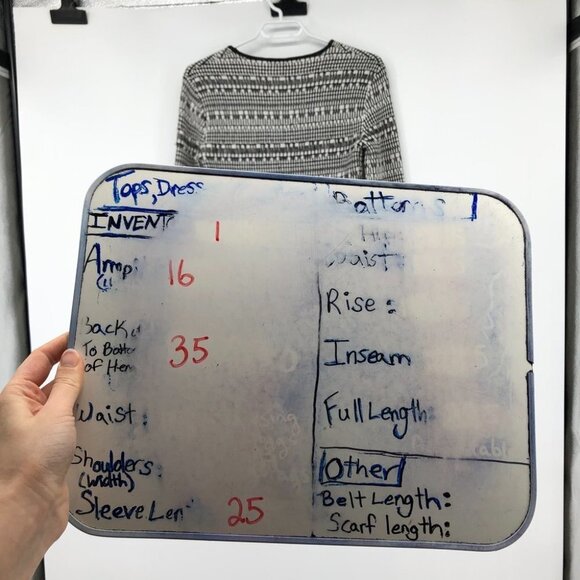 Tops, Dress
INVENT 1
Armpi 16
Back o
To Botto 35
of Hem
Waist:
Shoulders:
(width)
Sleeve Len 25
Bottoms
Hip
Waist:
Rise:
Inseam
Full Length
Other
Belt Length:
Scarf length: